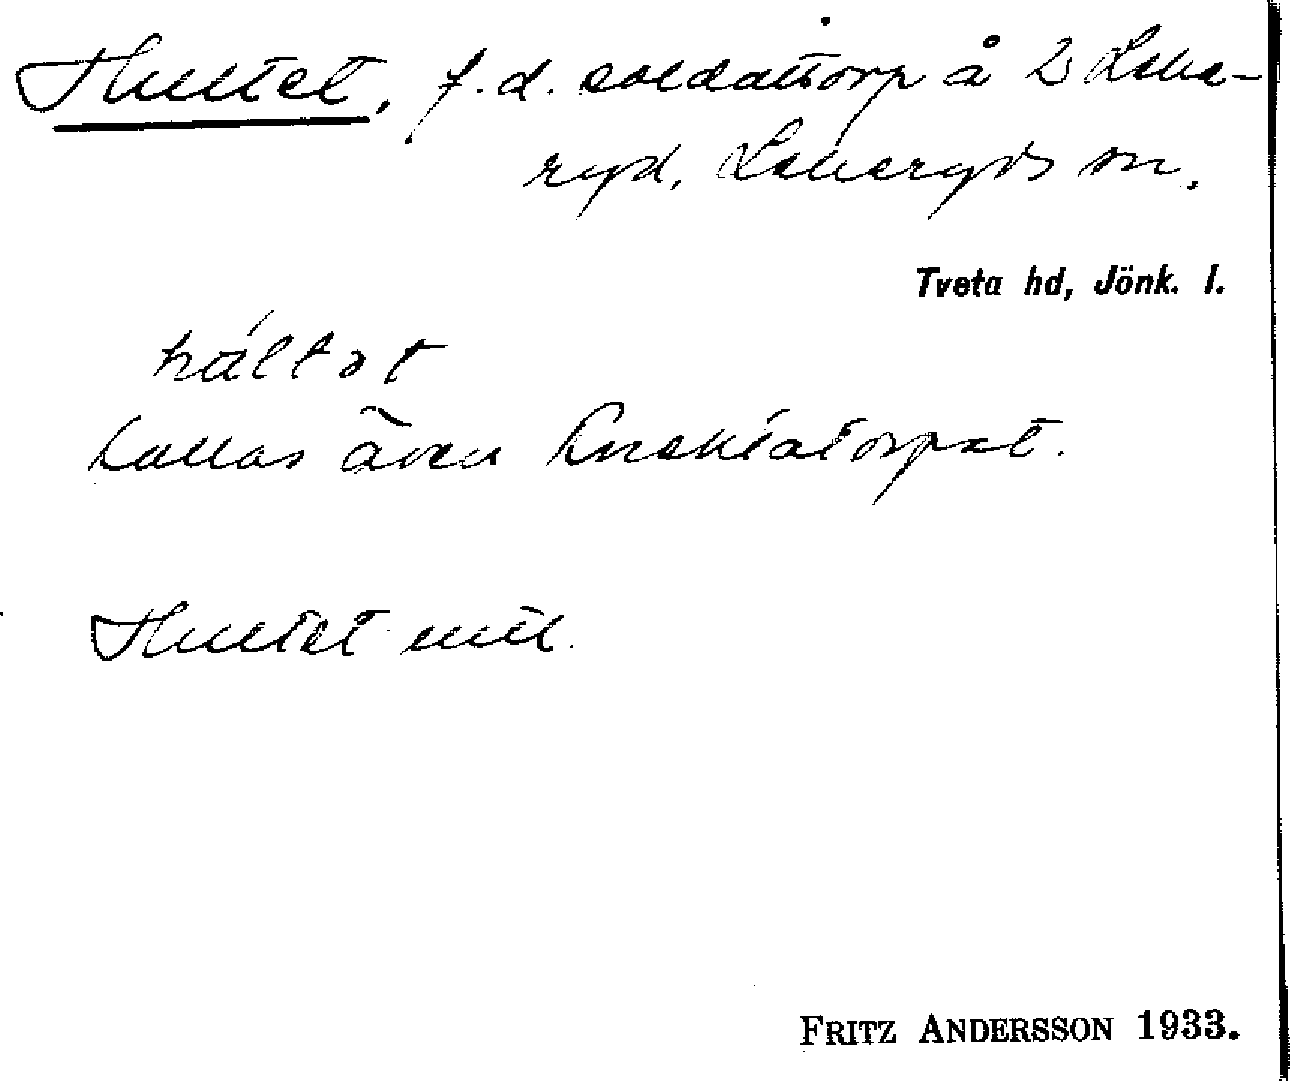 Hultet, f.d. soldattorp å L. Leke-
ryd, Lekeryds sn.
Tveta hd, Jönk. l.
húltət
Kallas även Knektatorpet.
Hultet
FRITZ ANDERSSON 1933.